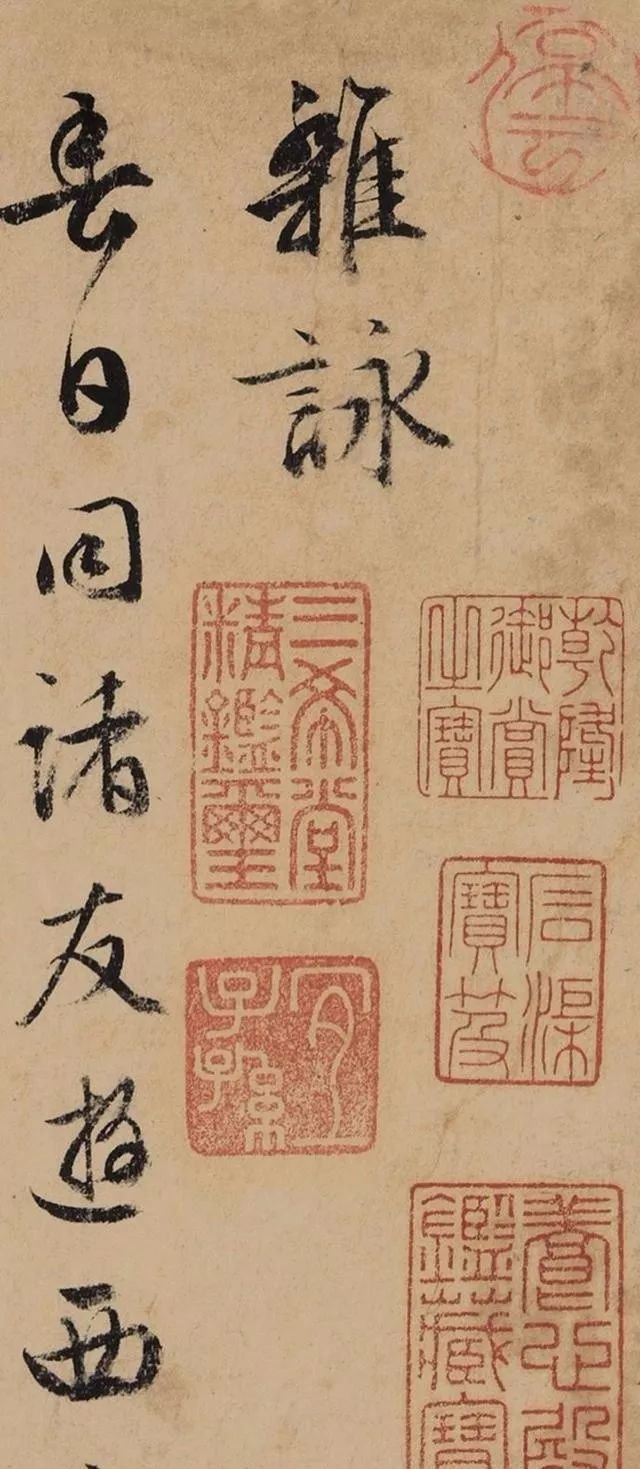 雜詠
春日同諸友遊西
乾隆
御賞
之寶
石渠
寶笈
三希堂
精鑑璽
宜
子孫
養心殿
鑑藏寶